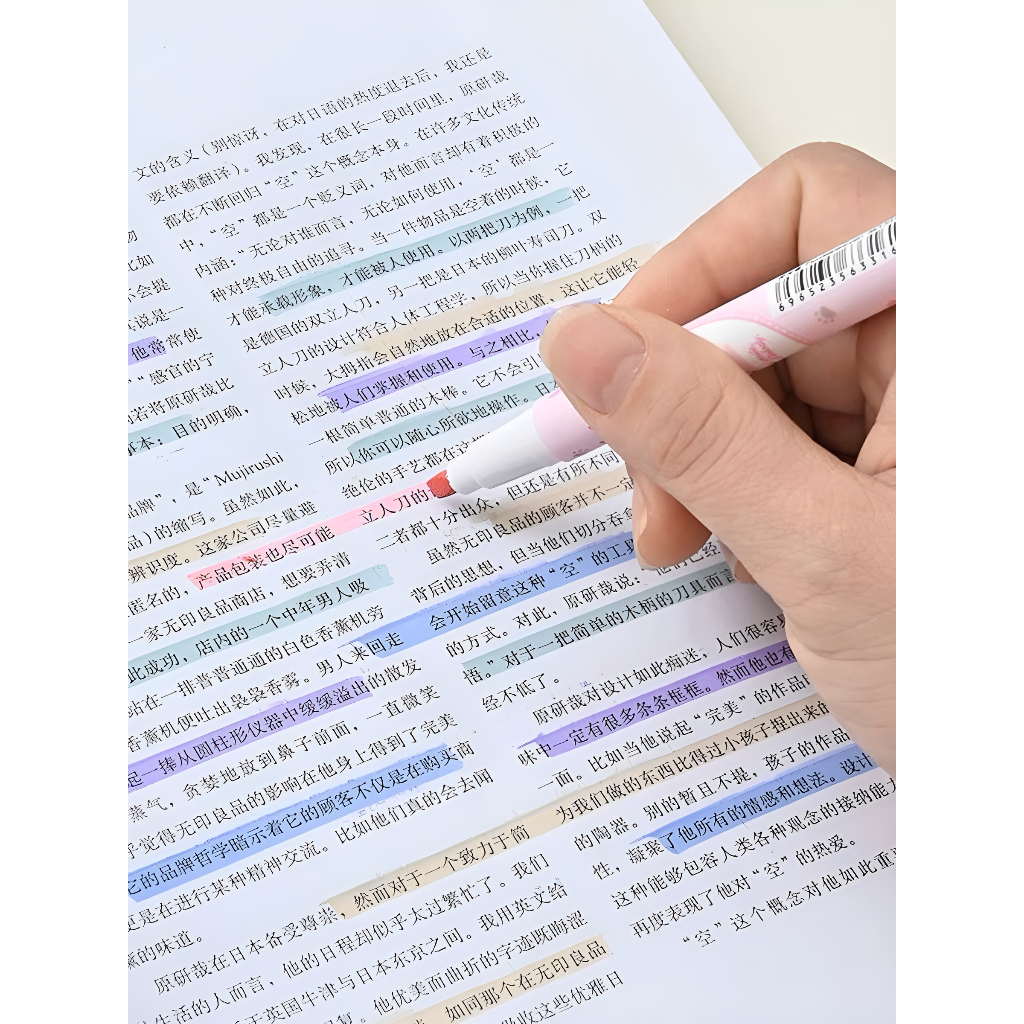 物
比如
不会提
说是一
他常常使
”感官的宁
若将原研哉比
本：目的明确，
品牌”，是“Mujirushi
品）的缩写。虽然如此，
辨识度。这家公司尽量避
匿名的，产品包装也尽可能
一家无印良品商店，想要弄清
此成功，店内的一个中年男人吸
站在一排普普通通的白色香薰机旁
香薰机便吐出袅袅香雾。男人来回走
起一捧从圆柱形仪器中缓缓溢出的散发
蒸气，贪婪地放到鼻子前面，一直微笑
乎觉得无印良品的影响在他身上得到了完美
它的品牌哲学暗示着它的顾客不仅是在购买商
更是在进行某种精神交流。比如他们真的会去闻
薰的味道。
原研哉在日本备受尊崇，然而对于一个致力于简
生活的人而言，他的日程却似乎太过繁忙了。我们
于英国牛津与日本东京之间。我用英文给
他优美而曲折的字迹既晦涩
如同那个在无印良品
吸收这些优雅日
文的含义（别惊讶，在对日语的热度退去后，我还是
要依赖翻译）。我发现，在很长一段时间里，原研哉
都在不断回归“空”这个概念本身。在许多文化传统
中，“空”都是一个贬义词，对他而言却有着积极的
内涵：“无论对谁而言，无论如何使用，‘空’都是一
种对终极自由的追寻。当一件物品是空着的时候，它
才能承载形象，才能被人使用。以两把刀为例，一把
是德国的双立人刀，另一把是日本的柳叶寿司刀。双
立人刀的设计符合人体工程学，所以当你握住刀柄的
时候，大拇指会自然地放在合适的位置，这让它能轻
松地被人们掌握和使用。与之相比，
一根简单普通的木棒。它不会引
所以你可以随心所欲地操作。日
绝伦的手艺都在这
立人刀的
二者都十分出众，但还是有所不同
虽然无印良品的顾客并不一定
背后的思想，但当他们切分吞
会开始留意这种“空”的工具
的方式。对此，原研哉说：“他们已经
悟。”对于一把简单的木柄的刀具而言
经不低了。
原研哉对设计如此痴迷，人们很容易
味中一定有很多条条框框。然而他也有
一面。比如当他说起“完美”的作品
为我们做的东西比得过小孩子捏出来的
的陶器。别的暂且不提，孩子的作品
性，凝聚了他所有的情感和想法。设计
这种能够包容人类各种观念的接纳能力
再度表现了他对“空”的热爱。
“空”这个概念对他如此重
696523563316